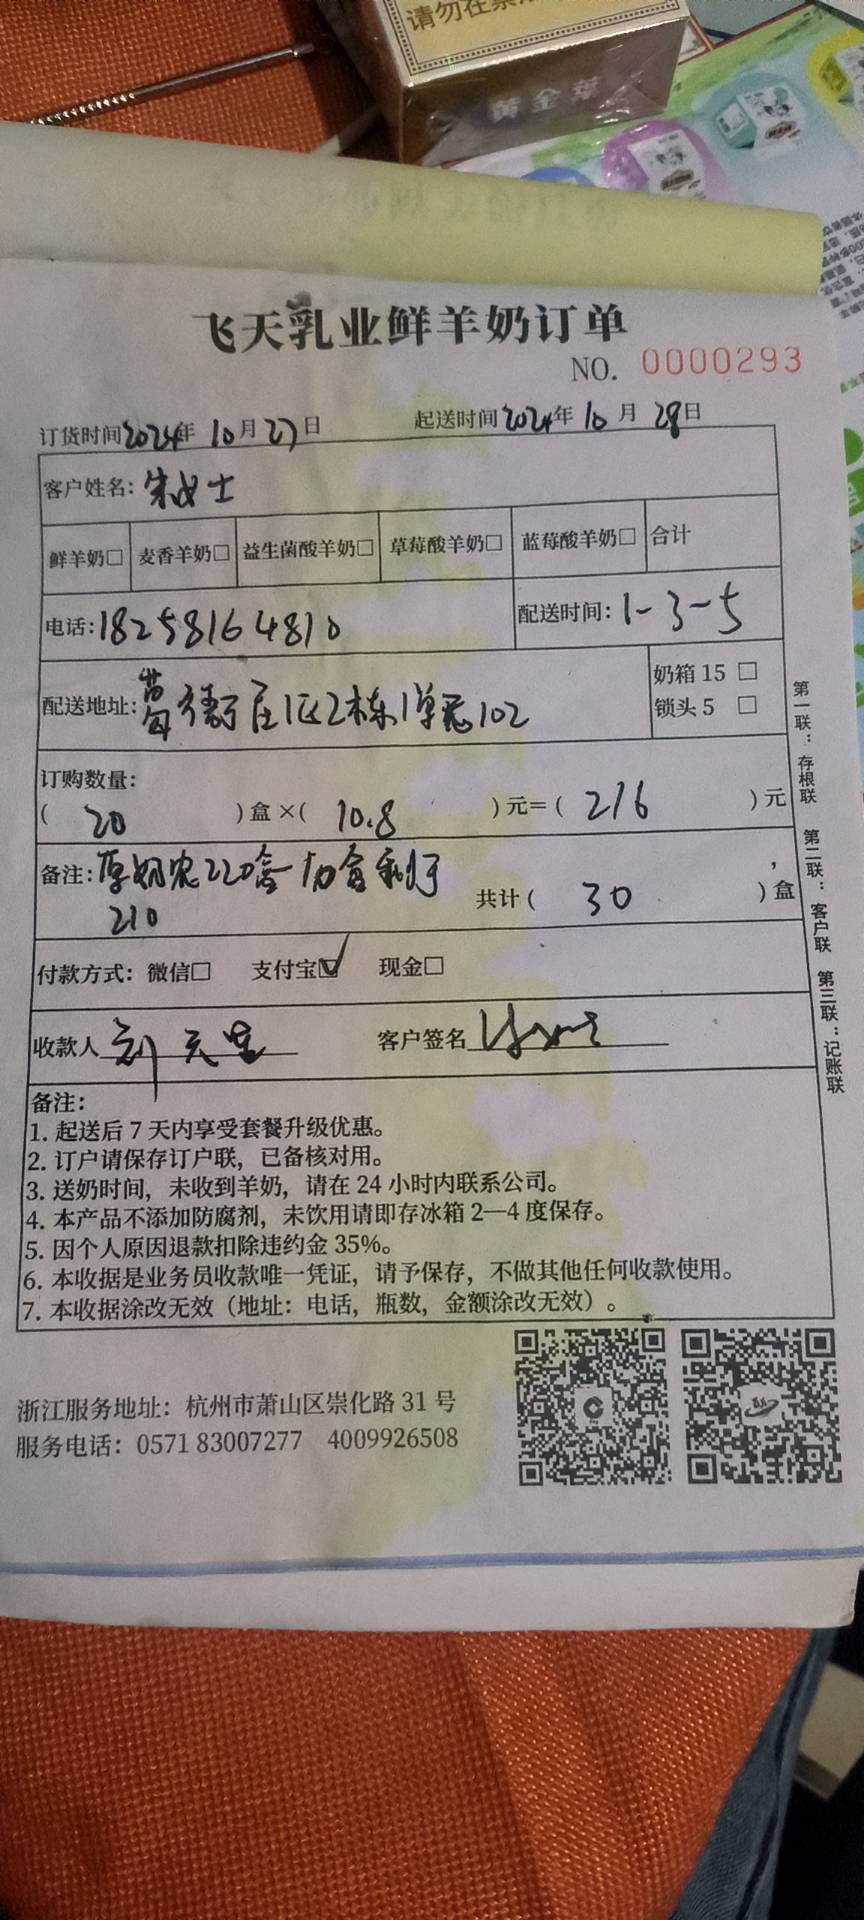 请勿在禁
黄金葉
飞天乳业鲜羊奶订单
NO. 0000293
订货时间2024年10月27日 起送时间2024年10月28日
客户姓名:朱女士
鲜羊奶□ 麦香羊奶□ 益生菌酸羊奶□ 草莓酸羊奶□ 蓝莓酸羊奶□ 合计
电话:18258164810 配送时间:1-3-5
配送地址: 1区2栋1单元102
奶箱 15 □
锁头 5 □
订购数量:
( 20 )盒 ×( 10.8 )元=( 216 )元
备注: 220盒
210 共计( 30 )盒
付款方式:微信□ 支付宝☑ 现金□
收款人 刘天 客户签名
备注:
1. 起送后 7 天内享受套餐升级优惠。
2. 订户请保存订户联,已备核对用。
3. 送奶时间,未收到羊奶,请在 24 小时内联系公司。
4. 本产品不添加防腐剂,未饮用请即存冰箱 2—4 度保存。
5. 因个人原因退款扣除违约金 35%。
6. 本收据是业务员收款唯一凭证,请予保存,不做其他任何收款使用。
7. 本收据涂改无效(地址:电话,瓶数,金额涂改无效)。
第一联:存根联 第二联:客户联 第三联:记账联
浙江服务地址:杭州市萧山区崇化路 31 号
服务电话:0571 83007277 4009926508